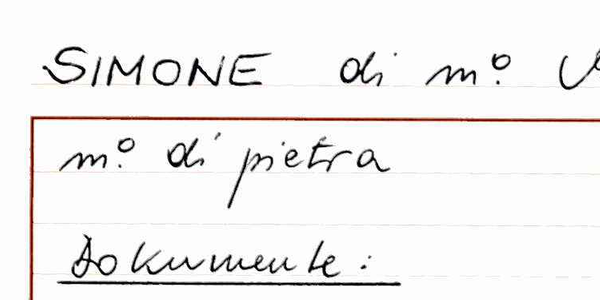 SIMONE di mº.
mº. di pietra
Dokumente: